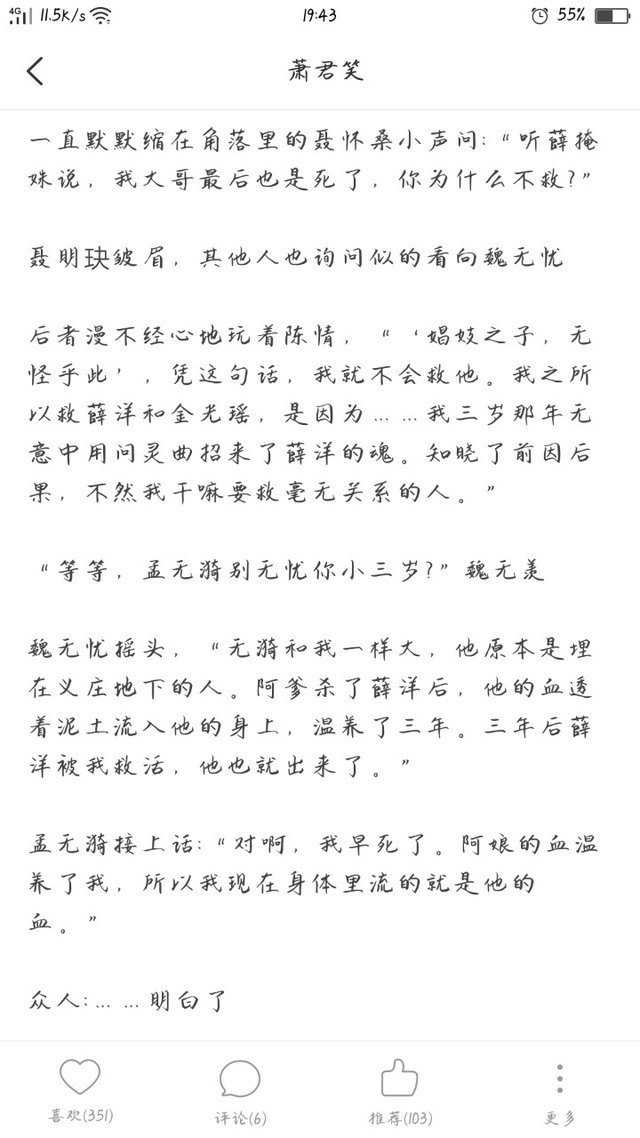 4G 11.5K/s 19:43 55%
萧君笑
一直默默缩在角落里的聂怀桑小声问:“听薛掩
姝说，我大哥最后也是死了，你为什么不救?”
聂明玦皱眉，其他人也询问似的看向魏无忧
后者漫不经心地玩着陈情，“‘娼妓之子，无
怪乎此’，凭这句话，我就不会救他。我之所
以救薛洋和金光瑶，是因为... ...我三岁那年无
意中用问灵曲招来了薛洋的魂。知晓了前因后
果，不然我干嘛要救毫无关系的人。”
“等等，孟无漪别无忧你小三岁?”魏无羡
魏无忧摇头，“无漪和我一样大，他原本是埋
在义庄地下的人。阿爹杀了薛洋后，他的血透
着泥土流入他的身上，温养了三年。三年后薛
洋被我救活，他也就出来了。”
孟无漪接上话:“对啊，我早死了。阿娘的血温
养了我，所以我现在身体里流的就是他的
血。”
众人:... ...明白了
喜欢(351) 评论(6) 推荐(103) 更多